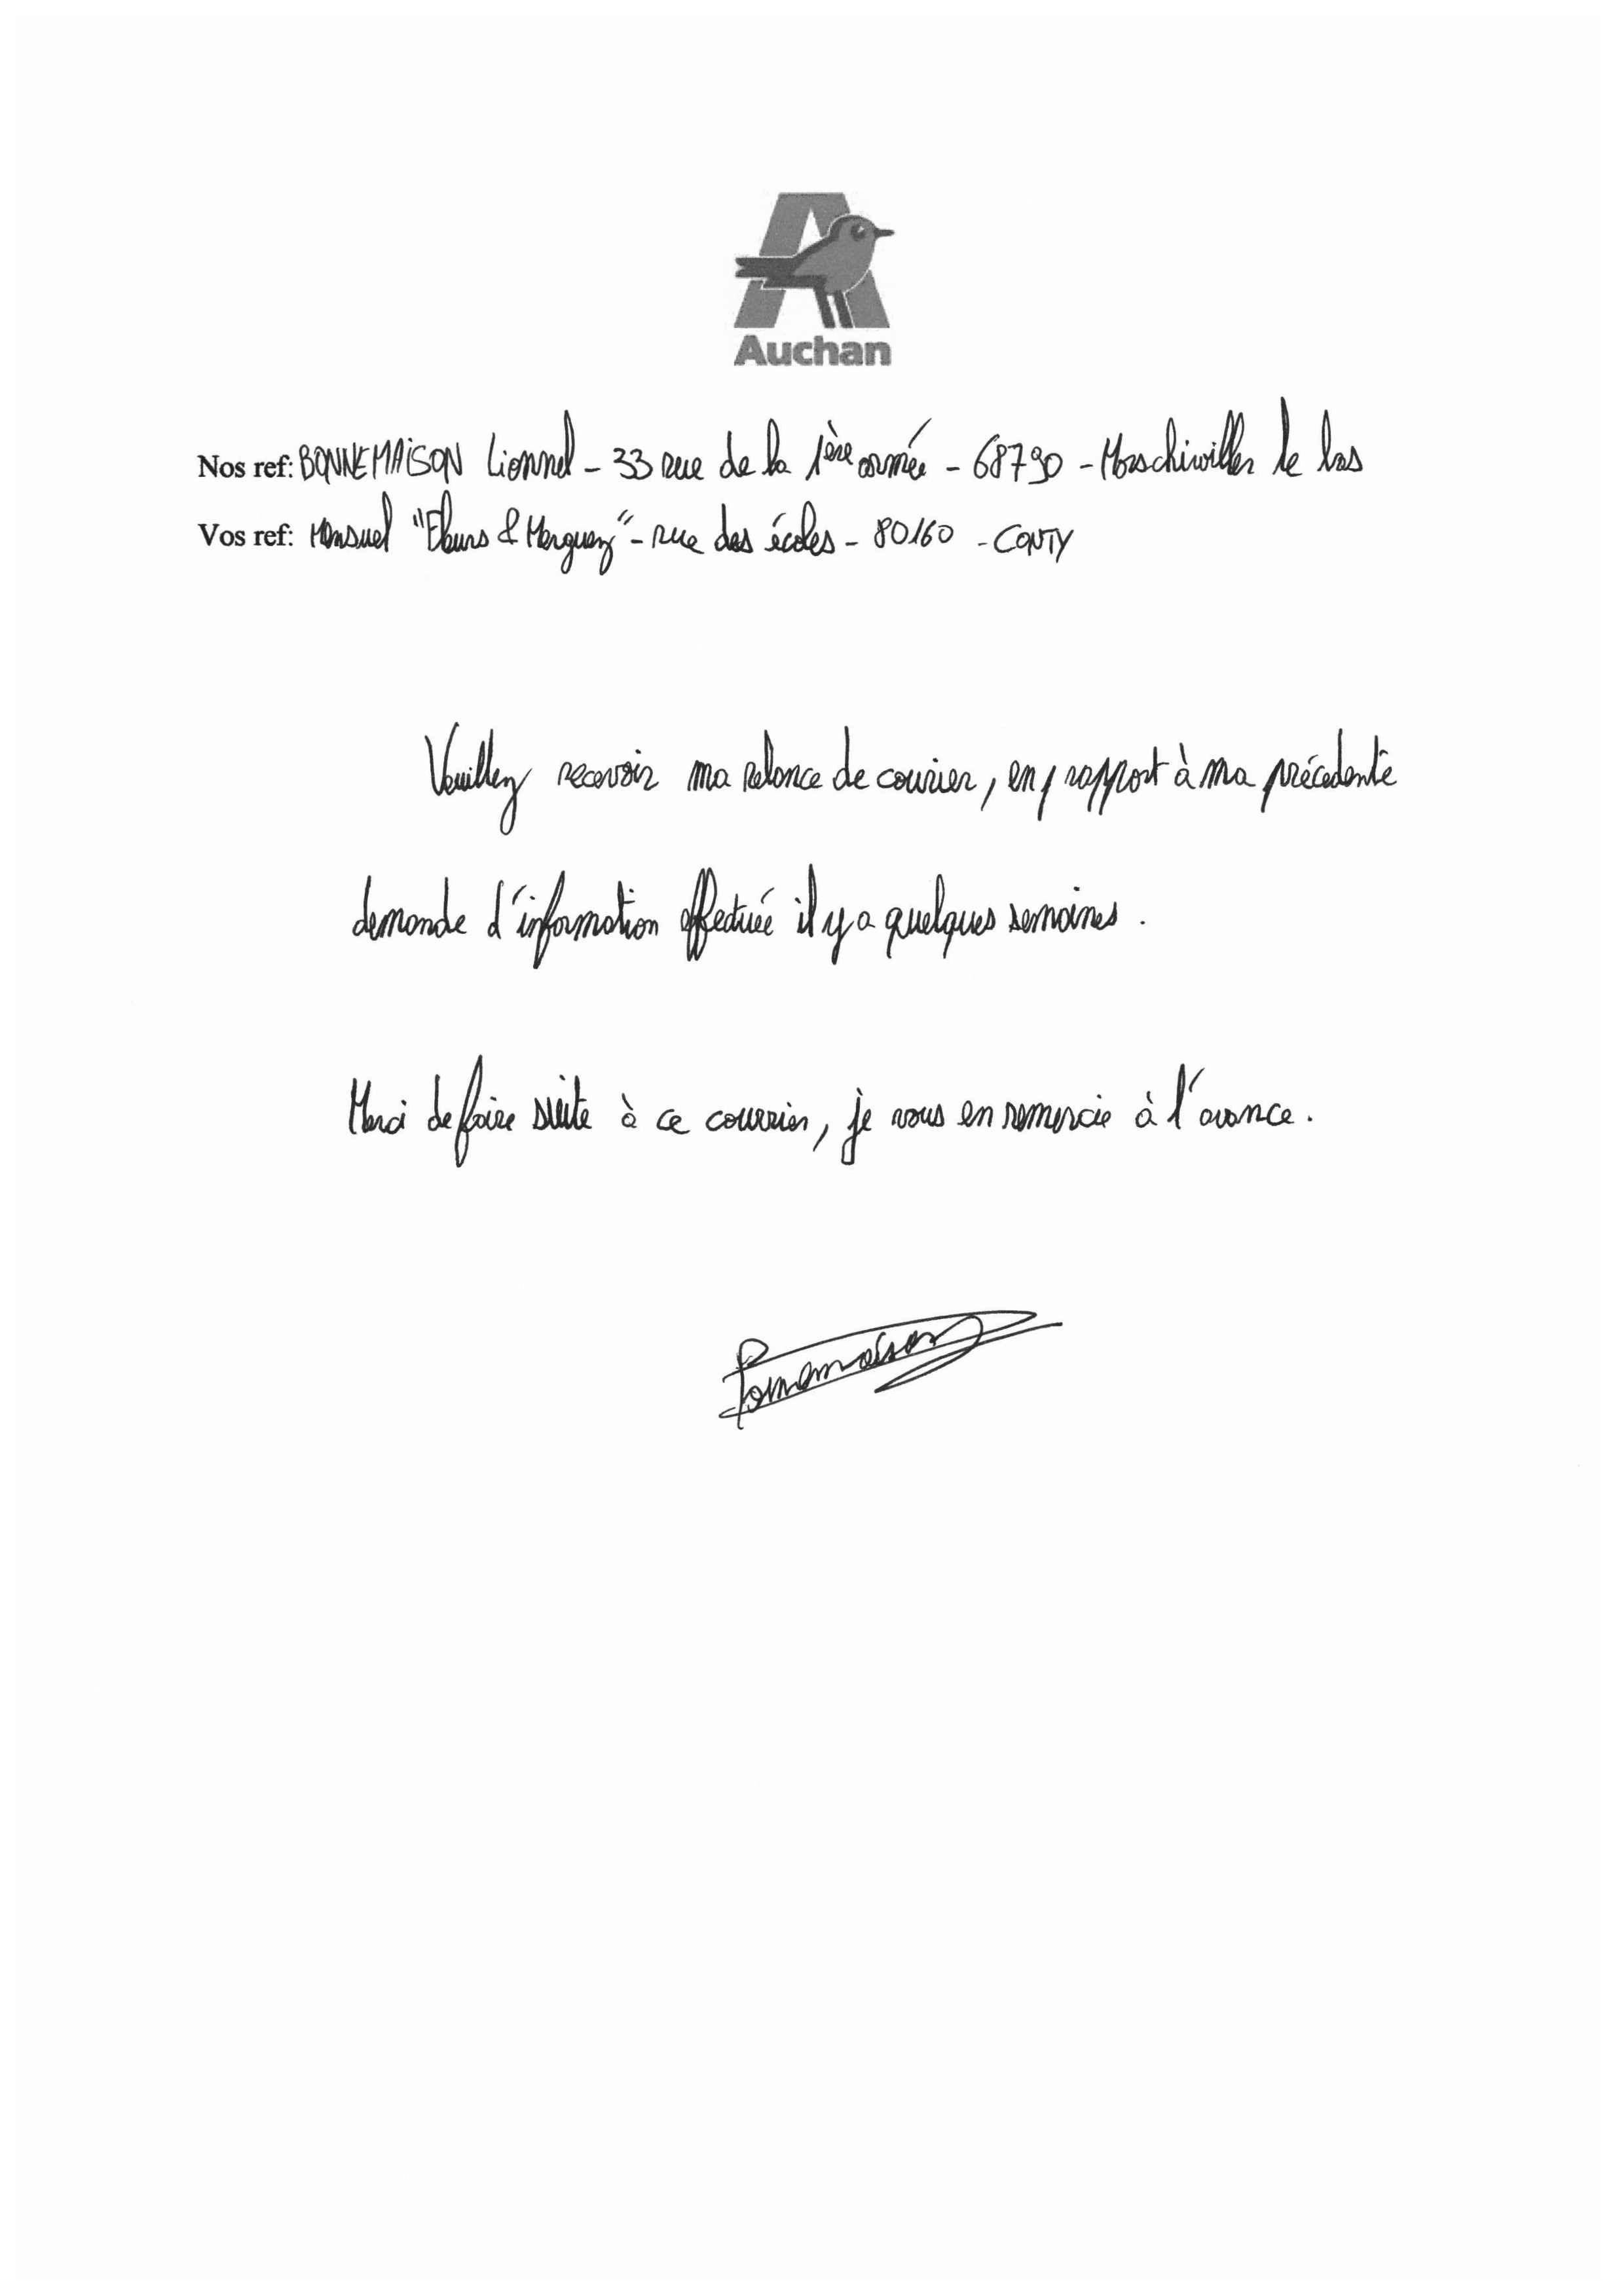 Auchan
Nos ref: BONNEMAISON Lionnel - 33 rue de la 1ère armée - 68790 - Morschwiller le bas
Vos ref: Mensuel "Fleurs & Merguez" - rue des écoles - 80160 - CONTY
Veuillez recevoir ma relance de courier, en rapport à ma précédente
demande d'information effectuée il y a quelques semaines.
Merci de faire suite à ce courrier, je vous en remercie à l'avance.
Bonnemaison